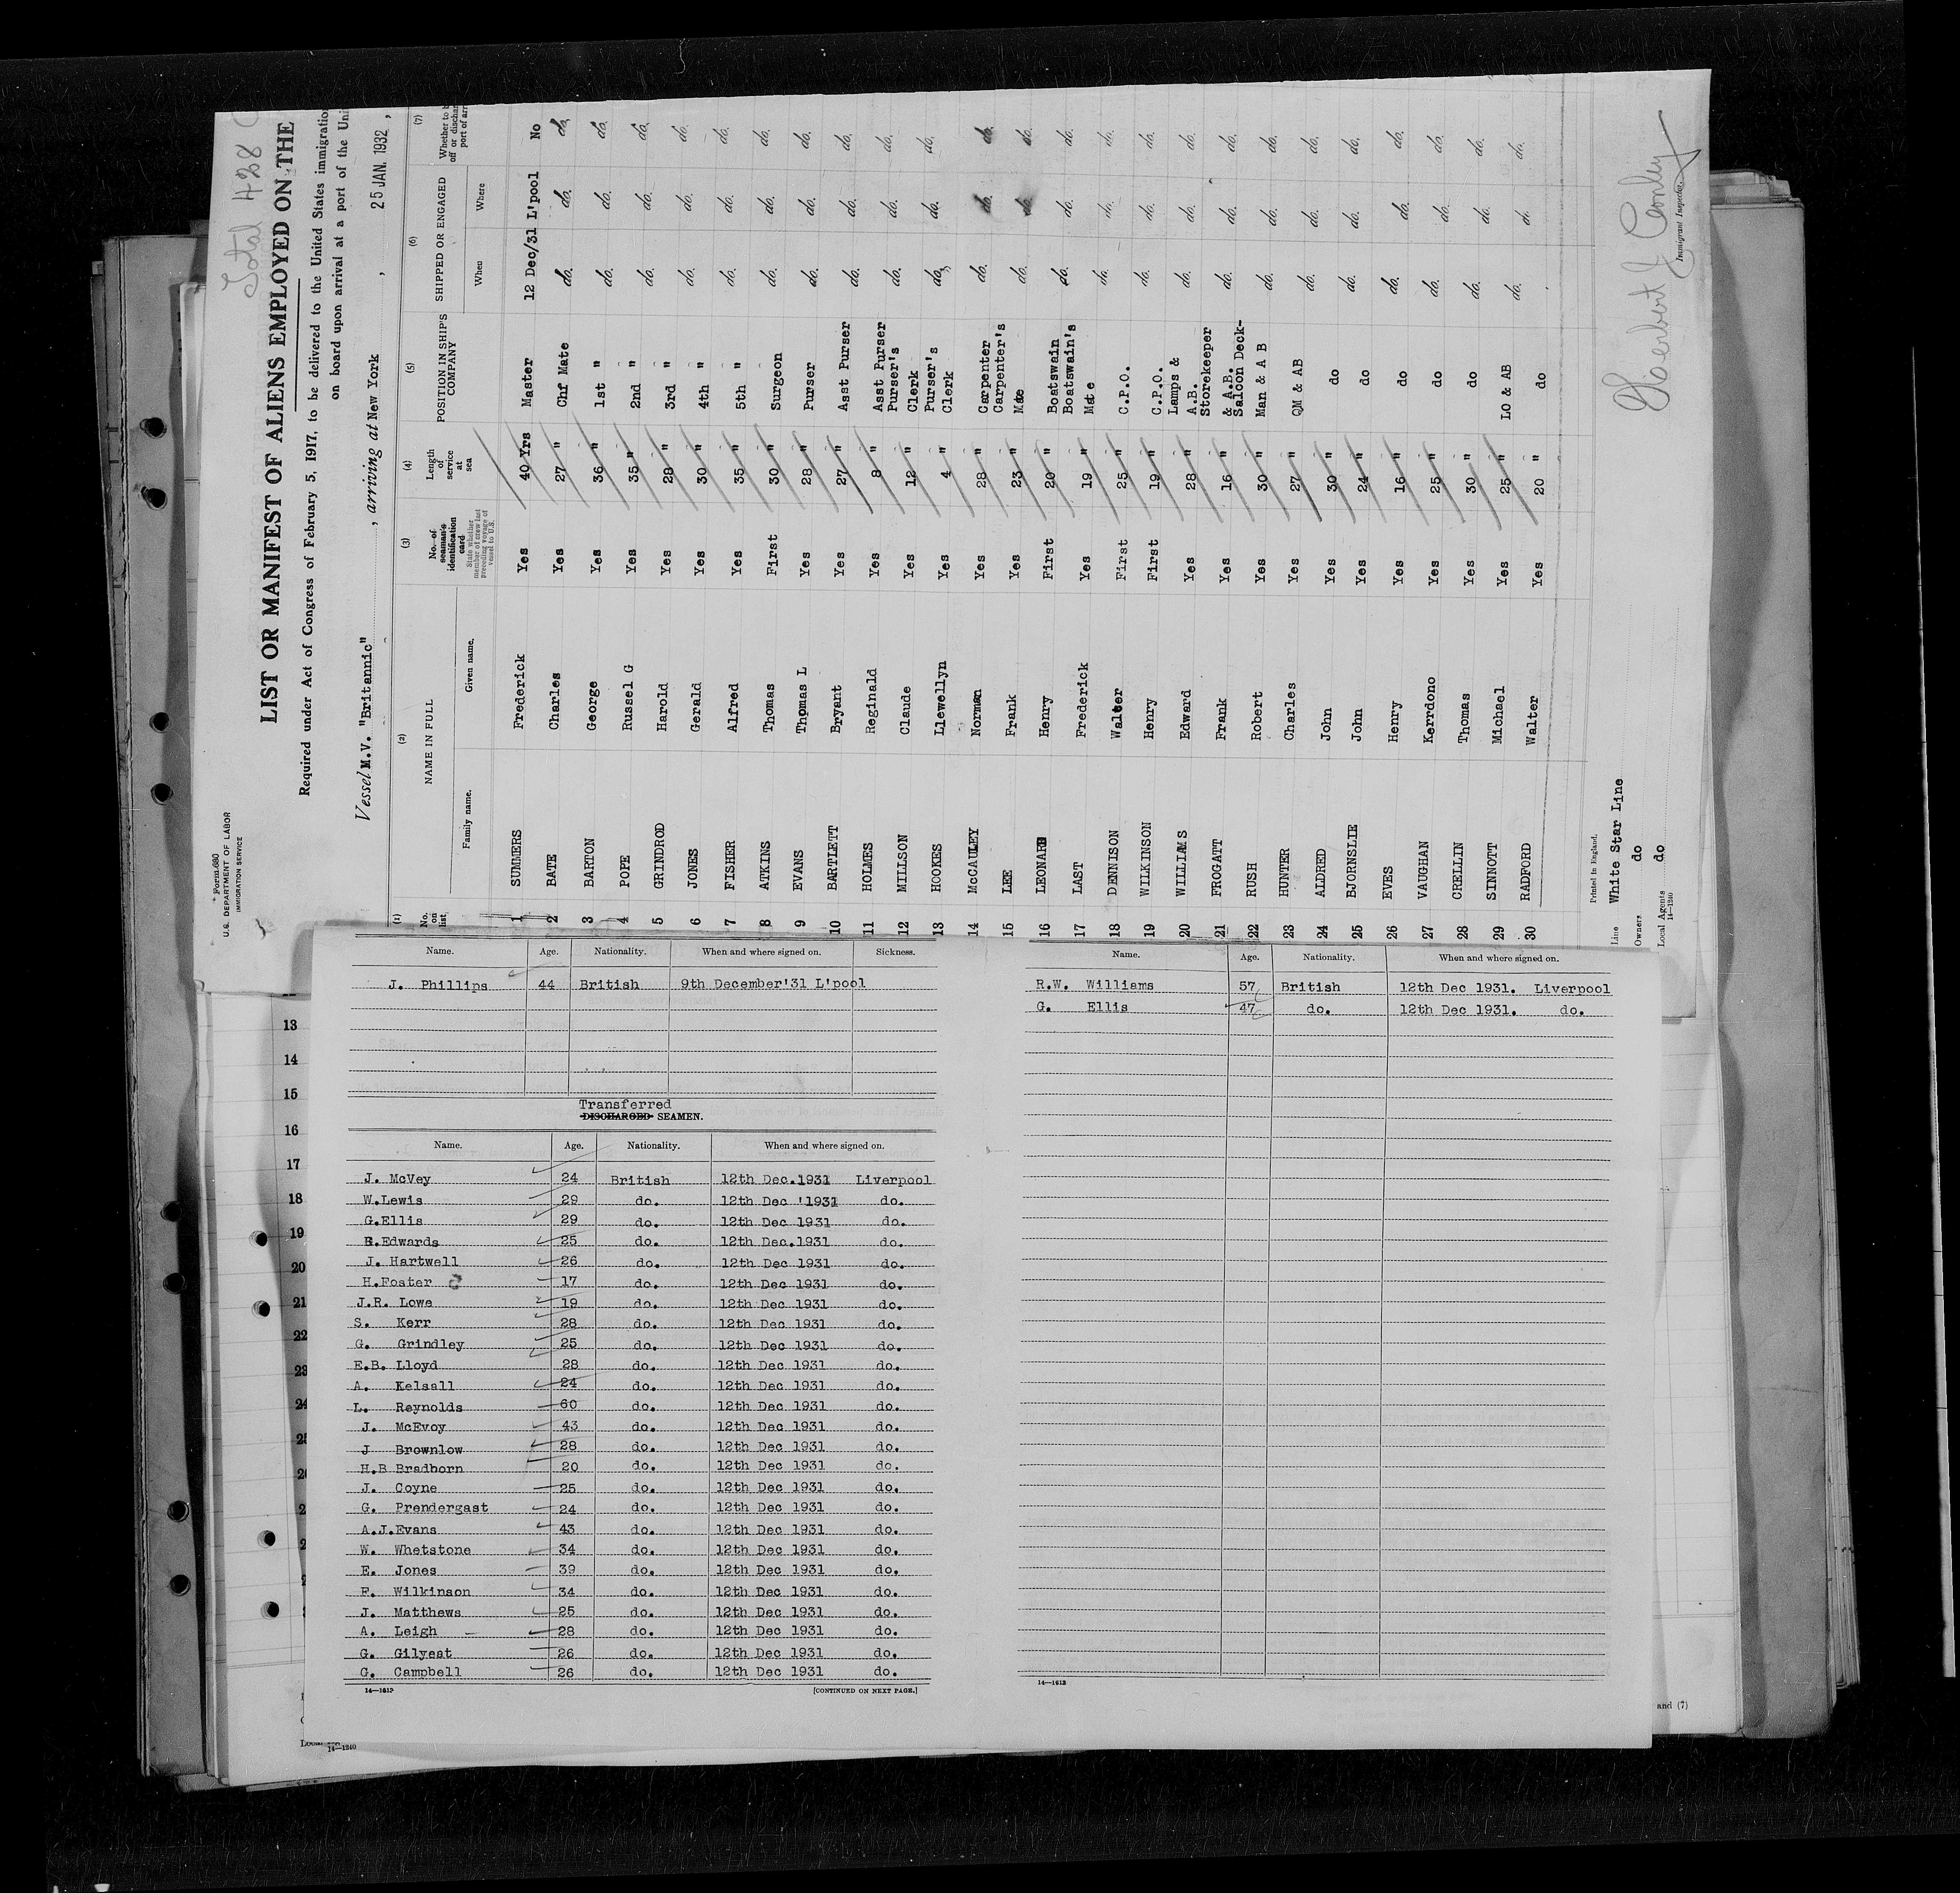 Total 428
Form 680
U.S. DEPARTMENT OF LABOR
IMMIGRATION SERVICE
LIST OR MANIFEST OF ALIENS EMPLOYED ON THE
Required under Act of Congress of February 5, 1917, to be delivered to the United States immigratio
on board upon arrival at a port of the Uni
Vessel M.V. "Britannic" , arriving at New York , 25 JAN. 1932 ,
(1) (2) (3) (4) (5) (6) (7)
No. on list. NAME IN FULL Family name. Given name. No. of seaman's identification card State whether member of crew last preceding voyage of vessel to U.S. Length of service at sea POSITION IN SHIP'S COMPANY SHIPPED OR ENGAGED When Where Whether to b off or dischar port of arr
1 SUMMERS Frederick Yes 40 Yrs Master 12 Dec/31 L'pool No
2 BATE Charles Yes 27 " Chf Mate do. do. do.
3 BARTON George Yes 36 " 1st " do. do. do.
4 POPE Russel G Yes 35 " 2nd " do. do. do.
5 GRINDROD Harold Yes 28 " 3rd " do. do. do.
6 JONES Gerald Yes 30 " 4th " do. do. do.
7 FISHER Alfred Yes 35 " 5th " do. do. do.
8 ATKINS Thomas First 30 " Surgeon do. do. do.
9 EVANS Thomas L Yes 28 " Purser do. do. do.
10 BARTLETT Bryant Yes 27 " Asst Purser do. do. do.
11 HOLMES Reginald Yes 8 " Asst Purser do. do. do.
12 MILLSON Claude Yes 12 " Purser's Clerk do. do. do.
13 HOOKES Llewellyn Yes 4 " Purser's Clerk do. do. do.
14 McCAULEY Norman Yes 28 " Carpenter do. do. do.
15 LEE Frank Yes 23 " Carpenter's Mate do. do. do.
16 LEONARD Henry First 20 " Boatswain do. do. do.
17 LAST Frederick Yes 19 " Boatswain's Mate do. do. do.
18 DENNISON Walter First 25 " C.P.O. do. do. do.
19 WILKINSON Henry First 19 " C.P.O. do. do. do.
20 WILLIAMS Edward Yes 28 " Lamps & A.B. do. do. do.
21 FROGATT Frank Yes 16 " Storekeeper & A.B. do. do. do.
22 RUSH Robert Yes 30 " Saloon Deck-Man & A B do. do. do.
23 HUNTER Charles Yes 27 " QM & AB do. do. do.
24 ALDRED John Yes 30 " do do. do. do.
25 BJORNSLIE John Yes 24 " do do. do. do.
26 EVES Henry Yes 16 " do do. do. do.
27 VAUGHAN Kerrdono Yes 25 " do do. do. do.
28 CRELLIN Thomas Yes 30 " do do. do. do.
29 SINNOTT Michael Yes 25 " LO & AB do. do. do.
30 RADFORD Walter Yes 20 " do
Printed in England.
Line White Star Line
Owners do
Local Agents do
14-1240
Herbert J Conley
Immigrant Inspector.
Name. Age. Nationality. When and where signed on. Sickness.
J. Phillips 44 British 9th December'31 L'pool
Transferred
DISCHARGED SEAMEN.
Name. Age. Nationality. When and where signed on.
J. McVey 24 British 12th Dec.1931 Liverpool
W.Lewis 29 do. 12th Dec '1931 do.
G.Ellis 29 do. 12th Dec 1931 do.
R.Edwards 25 do. 12th Dec.1931 do.
J. Hartwell 26 do. 12th Dec 1931 do.
H.Foster 17 do. 12th Dec 1931 do.
J.R. Lowe 19 do. 12th Dec 1931 do.
S. Kerr 28 do. 12th Dec 1931 do.
G. Grindley 25 do. 12th Dec 1931 do.
E.B. Lloyd 28 do. 12th Dec 1931 do.
A. Kelsall 24 do. 12th Dec 1931 do.
L. Reynolds 60 do. 12th Dec 1931 do.
J. McEvoy 43 do. 12th Dec 1931 do.
J Brownlow 28 do. 12th Dec 1931 do.
H.B Bradborn 20 do. 12th Dec 1931 do.
J. Coyne 25 do. 12th Dec 1931 do.
G. Prendergast 24 do. 12th Dec 1931 do.
A.J.Evans 43 do. 12th Dec 1931 do.
W. Whetstone 34 do. 12th Dec 1931 do.
E. Jones 39 do. 12th Dec 1931 do.
F. Wilkinson 34 do. 12th Dec 1931 do.
J. Matthews 25 do. 12th Dec 1931 do.
A. Leigh 28 do. 12th Dec 1931 do.
G. Gilyeat 26 do. 12th Dec 1931 do.
G. Campbell 26 do. 12th Dec 1931 do.
14-1612 [CONTINUED ON NEXT PAGE.]
Name. Age. Nationality. When and where signed on.
R.W. Williams 57 British 12th Dec 1931. Liverpool
G. Ellis 47 do. 12th Dec 1931. do.
14-1612
13
14
15
16
17
18
19
20
21
22
23
24
14-1240
and (7)